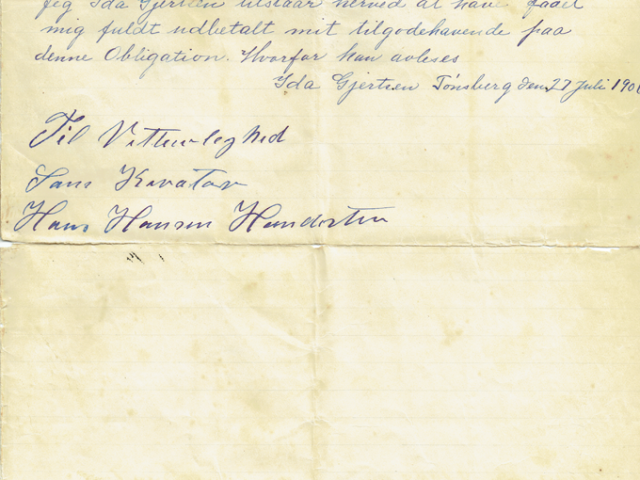 Jeg Ida Gjertsen tilstaar herved at have faaet
mig fuldt udbetalt mit tilgodehavende paa
denne Obligation. Hvorfor kan avleses
Ida Gjertsen Tönsberg den 27 Juli 190
Til Vitterleghed
Som Kurator
Hans Hansen